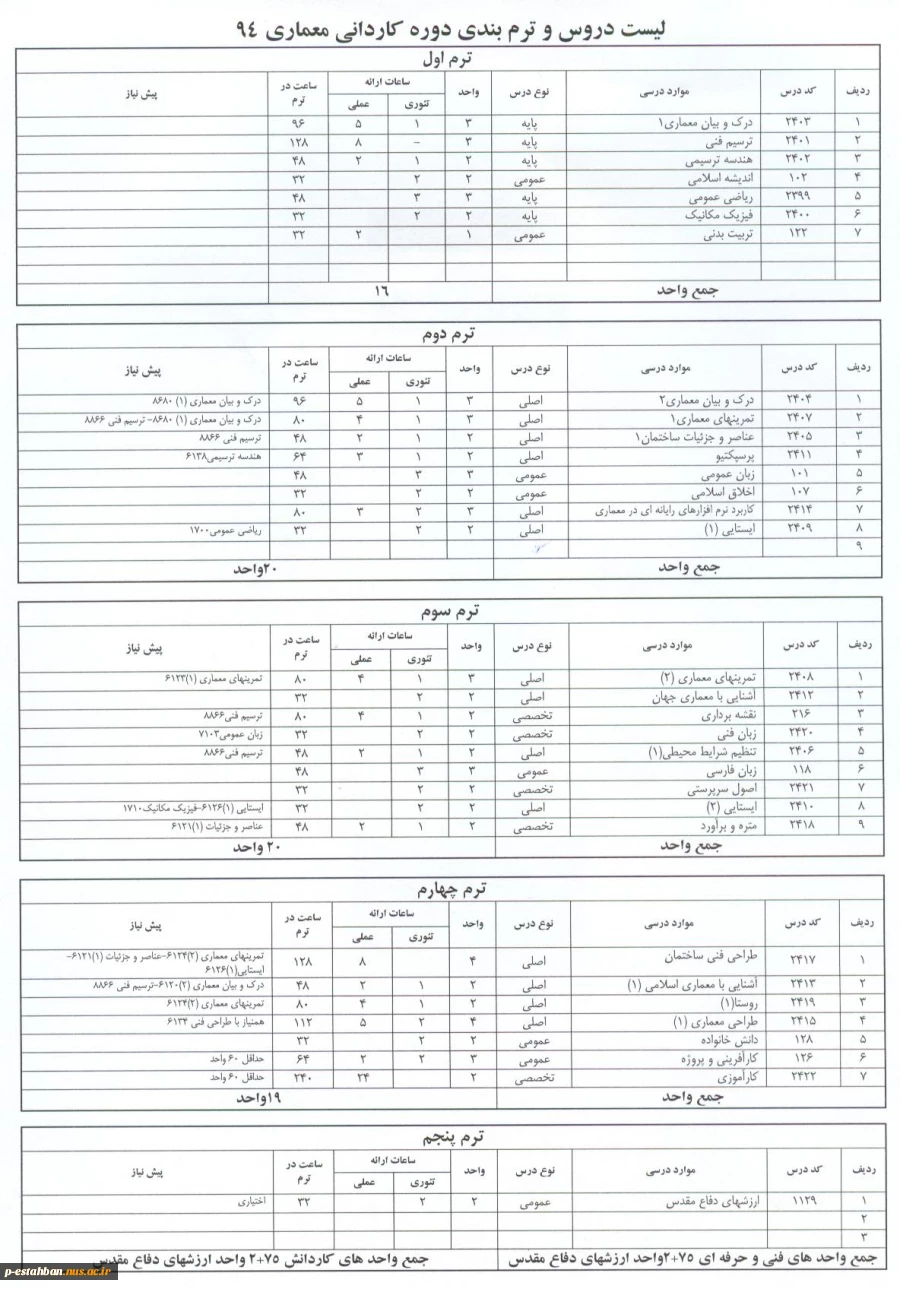 لیست دروس و ترم بندی دوره کاردانی معماری ۹۴
ترم اول
ردیف کد درس موارد درسی نوع درس واحد ساعات ارائه ساعت در ترم پیش نیاز
تئوری عملی
۱ ۲۴۰۳ درک و بیان معماری۱ پایه ۳ ۱ ۵ ۹۶
۲ ۲۴۰۱ ترسیم فنی پایه ۳ – ۸ ۱۲۸
۳ ۲۴۰۲ هندسه ترسیمی پایه ۲ ۱ ۲ ۴۸
۴ ۱۰۲ اندیشه اسلامی عمومی ۲ ۲ ۳۲
۵ ۲۳۹۹ ریاضی عمومی پایه ۳ ۳ ۴۸
۶ ۲۴۰۰ فیزیک مکانیک پایه ۲ ۲ ۳۲
۷ ۱۲۲ تربیت بدنی عمومی ۱ ۲ ۳۲
جمع واحد ۱۶
ترم دوم
ردیف کد درس موارد درسی نوع درس واحد ساعات ارائه ساعت در ترم پیش نیاز
تئوری عملی
۱ ۲۴۰۴ درک و بیان معماری۲ اصلی ۳ ۱ ۵ ۹۶ درک و بیان معماری (۱) ۸۶۸۰
۲ ۲۴۰۷ تمرینهای معماری۱ اصلی ۳ ۱ ۴ ۸۰ درک و بیان معماری (۱) ۸۶۸۰- ترسیم فنی ۸۸۶۶
۳ ۲۴۰۵ عناصر و جزئیات ساختمان۱ اصلی ۲ ۱ ۲ ۴۸ ترسیم فنی ۸۸۶۶
۴ ۲۴۱۱ پرسپکتیو اصلی ۲ ۱ ۳ ۶۴ هندسه ترسیمی۶۱۳۸
۵ ۱۰۱ زبان عمومی عمومی ۳ ۳ ۴۸
۶ ۱۰۷ اخلاق اسلامی عمومی ۲ ۲ ۳۲
۷ ۲۴۱۴ کاربرد نرم افزارهای رایانه ای در معماری اصلی ۳ ۲ ۳ ۸۰
۸ ۲۴۰۹ ایستایی (۱) اصلی ۲ ۲ ۳۲ ریاضی عمومی۱۷۰۰
۹
جمع واحد ۲۰واحد
ترم سوم
ردیف کد درس موارد درسی نوع درس واحد ساعات ارائه ساعت در ترم پیش نیاز
تئوری عملی
۱ ۲۴۰۸ تمرینهای معماری (۲) اصلی ۳ ۱ ۴ ۸۰ تمرینهای معماری (۱)۶۱۲۳
۲ ۲۴۱۲ آشنایی با معماری جهان اصلی ۲ ۲ ۳۲
۳ ۲۱۶ نقشه برداری تخصصی ۲ ۱ ۴ ۸۰ ترسیم فنی۸۸۶۶
۴ ۲۴۲۰ زبان فنی تخصصی ۲ ۲ ۳۲ زبان عمومی۷۱۰۳
۵ ۲۴۰۶ تنظیم شرایط محیطی(۱) اصلی ۲ ۱ ۲ ۴۸ ترسیم فنی۸۸۶۶
۶ ۱۱۸ زبان فارسی عمومی ۳ ۳ ۴۸
۷ ۲۴۲۱ اصول سرپرستی تخصصی ۲ ۲ ۳۲
۸ ۲۴۱۰ ایستایی (۲) اصلی ۲ ۲ ۳۲ ایستایی (۱)۶۱۲۶-فیزیک مکانیک۱۷۱۰
۹ ۲۴۱۸ متره و برآورد تخصصی ۲ ۱ ۲ ۴۸ عناصر و جزئیات (۱)۶۱۲۱
جمع واحد ۲۰ واحد
ترم چهارم
ردیف کد درس موارد درسی نوع درس واحد ساعات ارائه ساعت در ترم پیش نیاز
تئوری عملی
۱ ۲۴۱۷ طراحی فنی ساختمان اصلی ۴ ۸ ۱۲۸ تمرینهای معماری (۲)۶۱۲۴-عناصر و جزئیات (۱)۶۱۲۱-
ایستایی(۱)۶۱۲۶
۲ ۲۴۱۳ آشنایی با معماری اسلامی (۱) اصلی ۲ ۱ ۲ ۴۸ درک و بیان معماری (۲)۶۱۲۰-ترسیم فنی ۸۸۶۶
۳ ۲۴۱۹ روستا(۱) اصلی ۲ ۱ ۴ ۸۰ تمرینهای معماری (۲)۶۱۲۴
۴ ۲۴۱۵ طراحی معماری (۱) اصلی ۴ ۲ ۵ ۱۱۲ همنیاز با طراحی فنی ۶۱۳۴
۵ ۱۲۸ دانش خانواده عمومی ۲ ۲ ۳۲
۶ ۱۲۶ کارآفرینی و پروژه عمومی ۳ ۲ ۲ ۶۴ حداقل ۶۰ واحد
۷ ۲۴۲۲ کارآموزی تخصصی ۲ ۲۴ ۲۴۰ حداقل ۶۰ واحد
جمع واحد ۱۹واحد
ترم پنجم
ردیف کد درس موارد درسی نوع درس واحد ساعات ارائه ساعت در ترم پیش نیاز
تئوری عملی
۱ ۱۱۲۹ ارزشهای دفاع مقدس عمومی ۲ ۲ ۳۲ اختیاری
۲
۳
جمع واحد های فنی و حرفه ای ۷۵+۲واحد ارزشهای دفاع مقدس جمع واحد های کاردانش ۷۵+۲ واحد ارزشهای دفاع مقدس
p-estahban.nus.ac.ir